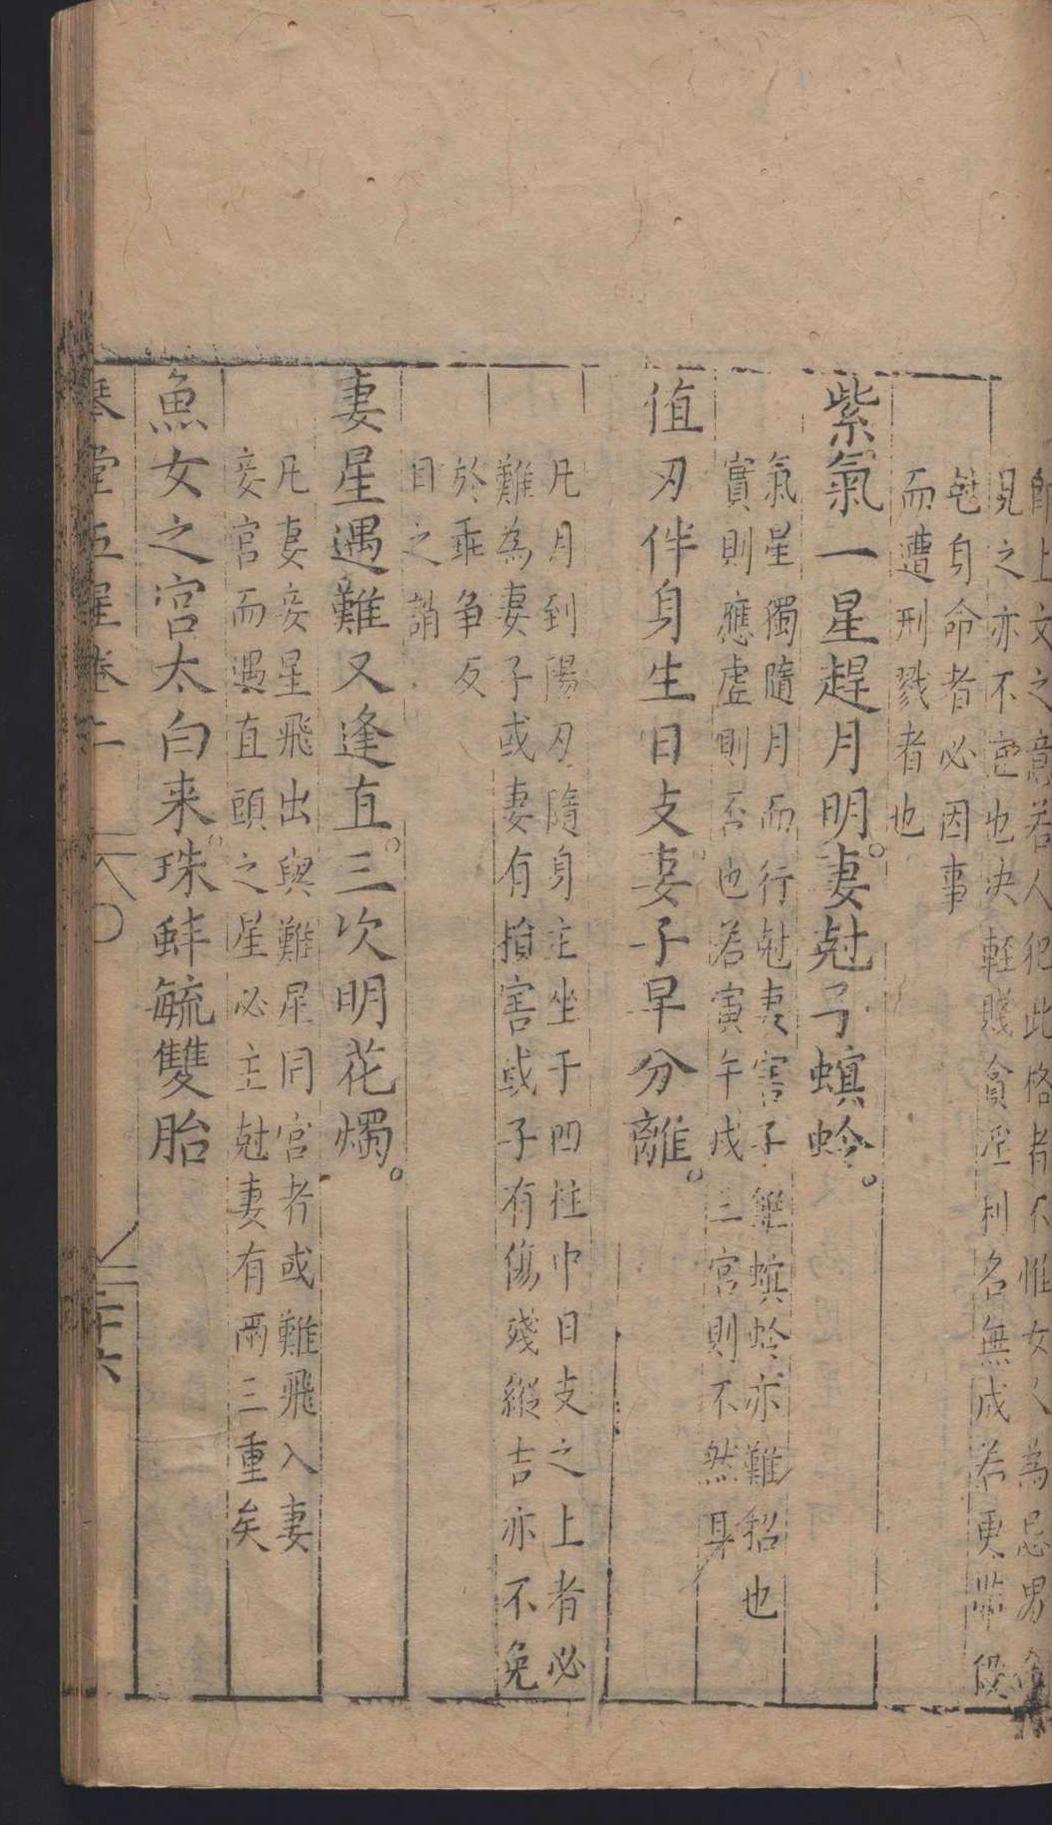 即上文之意若人犯此格者不惟女人為忌男命
見之亦不宜也决輊賤貪滛利名無成若更帶殺
尅身命者必因事
而遭刑戮者也
紫氣一星趕月明。妻尅子螟蛉。
氣星獨隨月而行尅妻害子雖螟蛉亦難招也
實則應虛則否也若寅午戌三宮則不然耳
值刃伴身生日支妻子早分離。
凡月到陽刃隨身主坐于四柱中日支之上者必
難為妻子或妻有損害或子有傷殘縱吉亦不免
於乖争反
目之誚
妻星遇難又逢直。三次明花燭。
凡妻妾星飛出與難星同宮者或難飛入妻
妾宮而遇直頭之星必主尅妻有兩三重矣
魚女之宮太白来。珠蚌毓雙胎
琴堂五星卷二
六
二十六